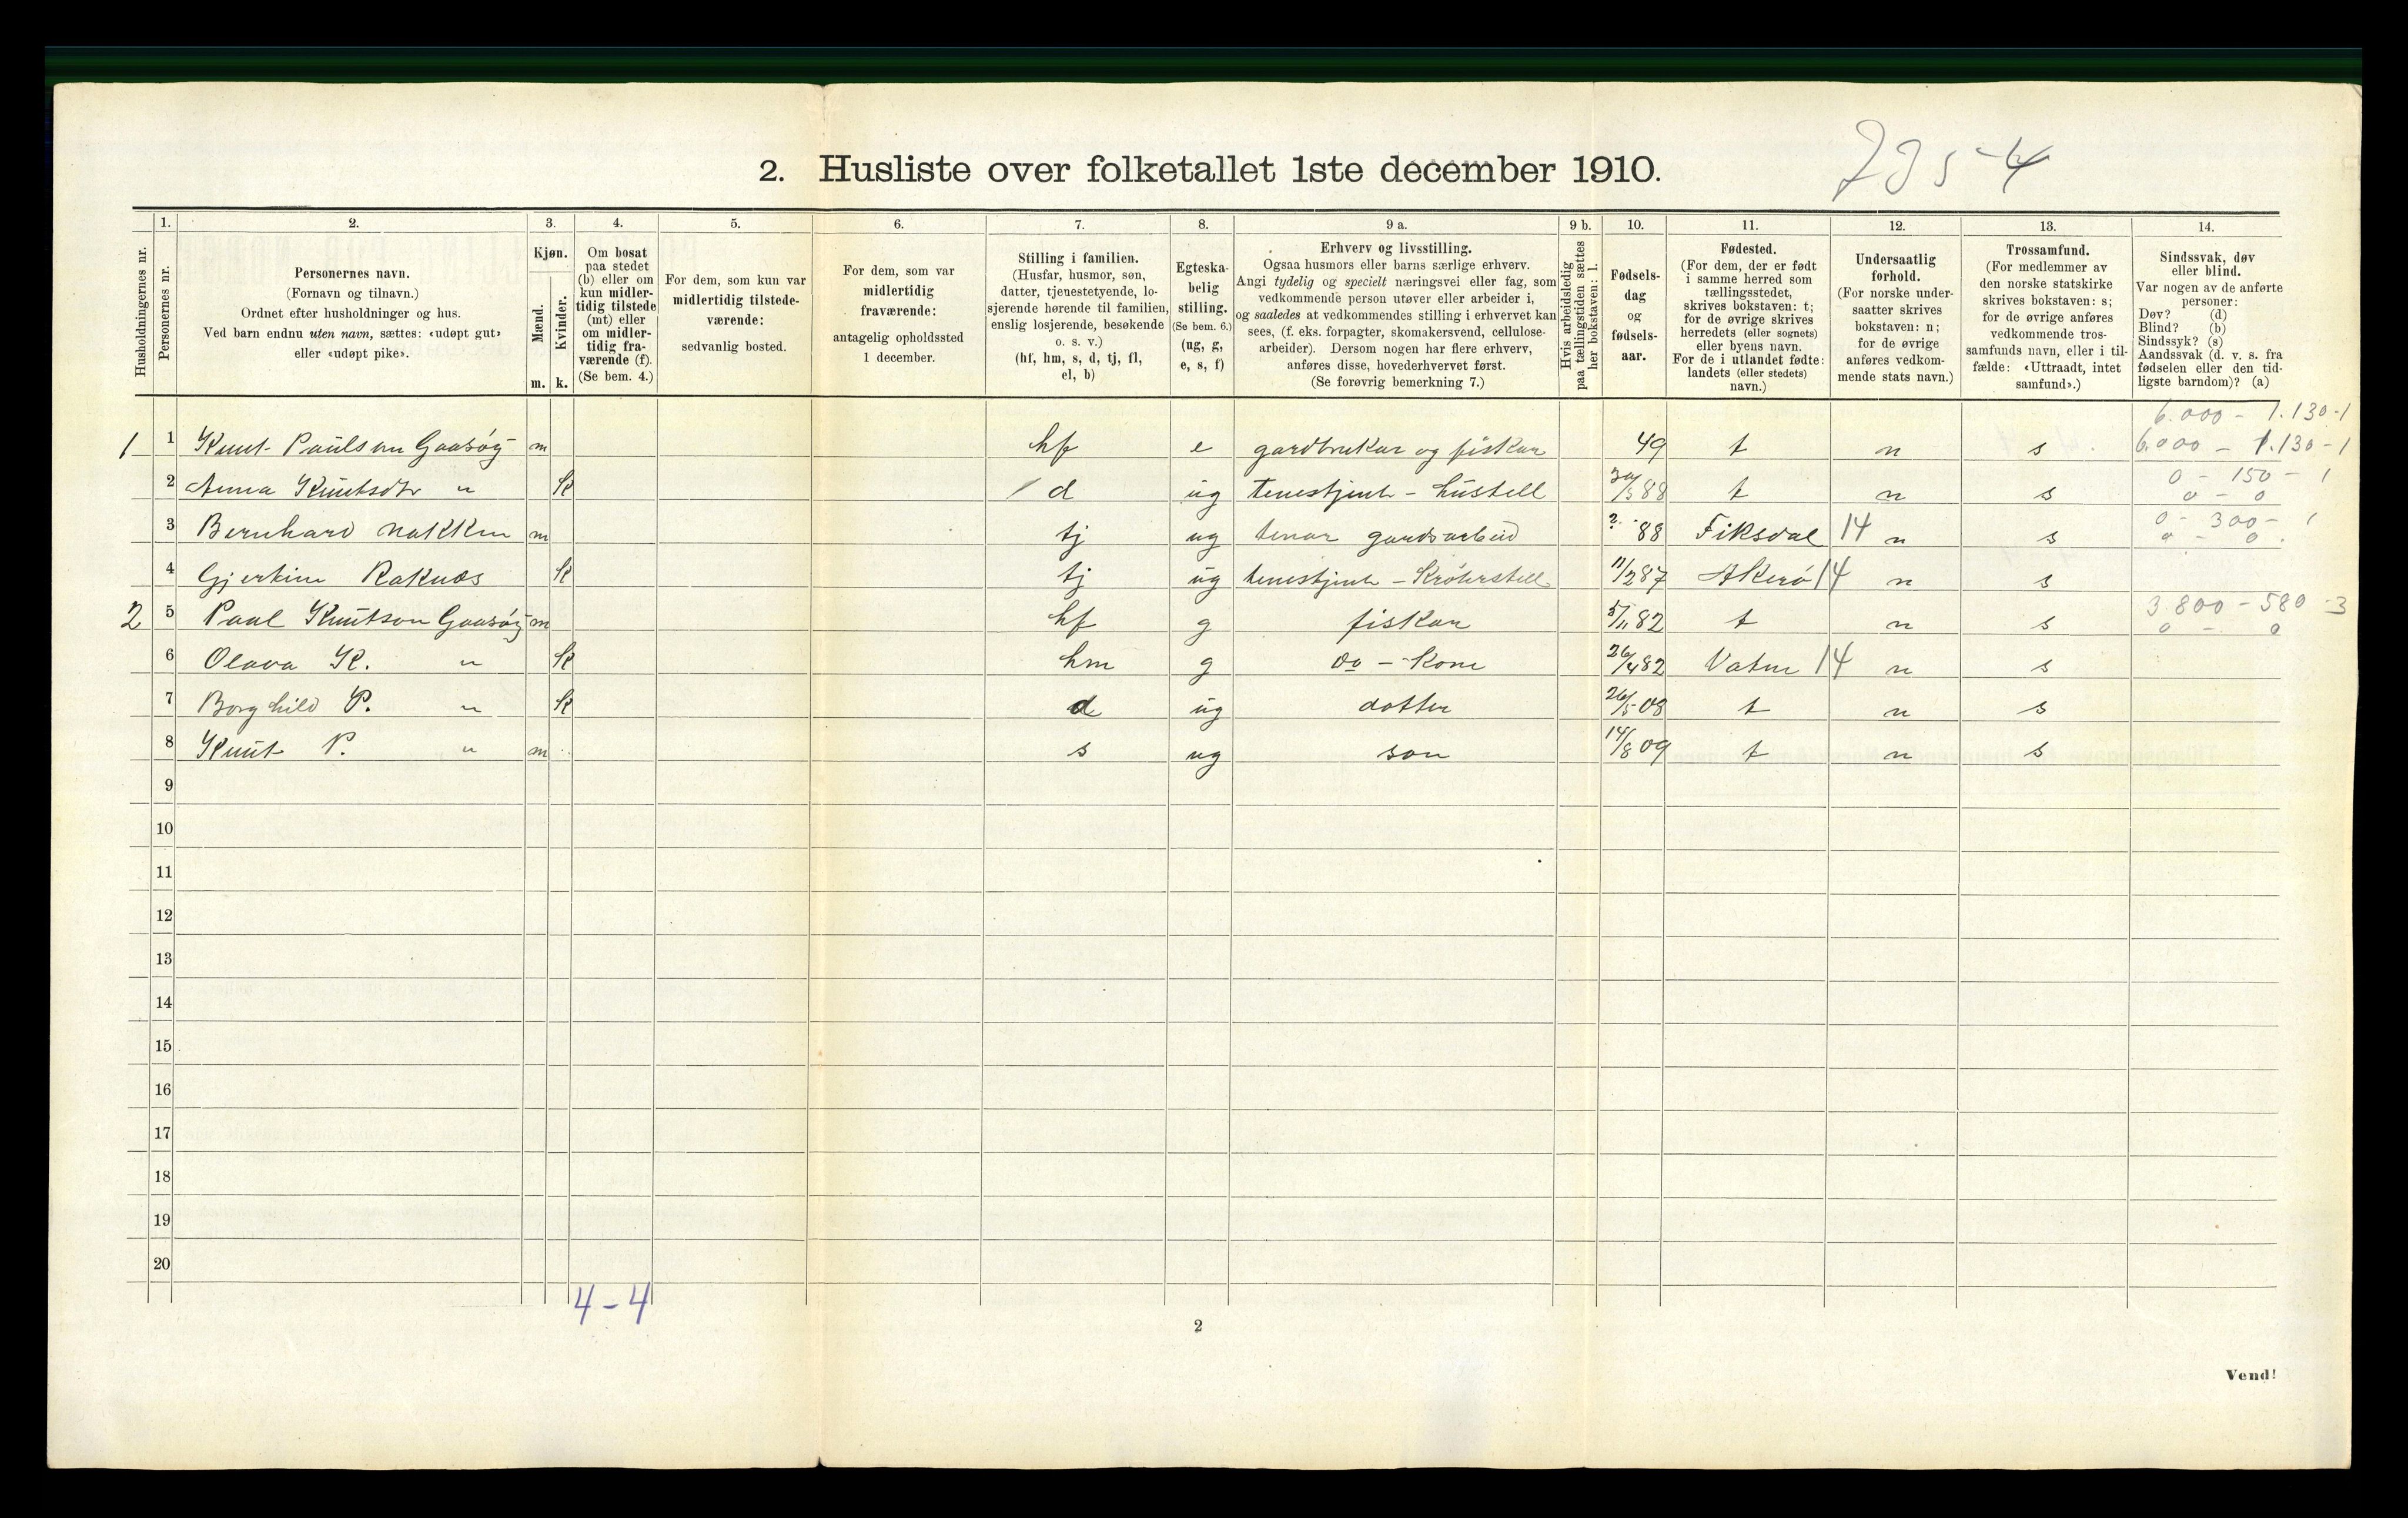 2. Husliste over folketallet 1ste december 1910.
1. 2. 3. 4. 5. 6. 7. 8. 9 a. 9 b. 10. 11. 12. 13. 14.
Husholdningernes nr.
Personernes nr.
Personernes navn.
(Fornavn og tilnavn.)
Ordnet efter husholdninger og hus.
Ved barn endnu uten navn, sættes: «udøpt gut»
eller «udøpt pike».
Kjøn.
Mænd.
Kvinder.
m. k.
Om bosat
paa stedet
(b) eller om
kun midler-
tidig tilstede
(mt) eller
om midler-
tidig fra-
værende (f).
(Se bem. 4.)
For dem, som kun var
midlertidig tilstede-
værende:
sedvanlig bosted.
For dem, som var
midlertidig
fraværende:
antagelig opholdssted
1 december.
Stilling i familien.
(Husfar, husmor, søn,
datter, tjenestetyende, lo-
sjerende hørende til familien,
enslig losjerende, besøkende
o. s. v.)
(hf, hm, s, d, tj, fl,
el, b)
Egteska-
belig
stilling.
(Se bem. 6.)
(ug, g,
e, s, f)
Erhverv og livsstilling.
Ogsaa husmors eller barns særlige erhverv.
Angi tydelig og specielt næringsvei eller fag, som
vedkommende person utøver eller arbeider i,
og saaledes at vedkommendes stilling i erhvervet kan
sees, (f. eks. forpagter, skomakersvend, cellulose-
arbeider). Dersom nogen har flere erhverv,
anføres disse, hovederhvervet først.
(Se forøvrig bemerkning 7.)
Hvis arbeidsledig
paa tællingstiden sættes
her bokstaven: l.
Fødsels-
dag
og
fødsels-
aar.
Fødested.
(For dem, der er født
i samme herred som
tællingsstedet,
skrives bokstaven: t;
for de øvrige skrives
herredets (eller sognets)
eller byens navn.
For de i utlandet fødte:
landets (eller stedets)
navn.)
Undersaatlig
forhold.
(For norske under-
saatter skrives
bokstaven: n;
for de øvrige
anføres vedkom-
mende stats navn.)
Trossamfund.
(For medlemmer av
den norske statskirke
skrives bokstaven: s;
for de øvrige anføres
vedkommende tros-
samfunds navn, eller i til-
fælde: «Uttraadt, intet
samfund».)
Sindssvak, døv
eller blind.
Var nogen av de anførte
personer:
Døv? (d)
Blind? (b)
Sindssyk? (s)
Aandssvak (d. v. s. fra
fødselen eller den tid-
ligste barndom)? (a)
6.000 - 1.130-1
1 1 Knut Paulson Gaasøy m hf e gardbrukar og fiskar 49 t n s 6.000 - 1.130-1
0 - 150 - 1
2 Anna Knutsdtr " k d ug tenestjent - hustell 88 t n s 0 - 0
0 - 300 - 1
3 Bernhard Nakken m tj ug tenar gardsarbeid ? 88 Fiksdal 14 n s 0 - 0
4 Gjertine Raknes k tj ug tenestjent - Krøterstell 11/2 87 Akerø 14 n s
3.800 - 580 - 3
2 5 Paul Knutson Gaasøy m hf g fiskar 5/11 82 t n s 0 - 0
6 Olava K. " k hm g do - kone 26/4 82 Vatne 14 n s
7 Borghild P. " k d ug dotter 26/5 08 t n s
8 Knut P. " m s ug son 14/8 09 t n s
9
10
11
12
13
14
15
16
17
18
19
20
4-4
2
Vend!